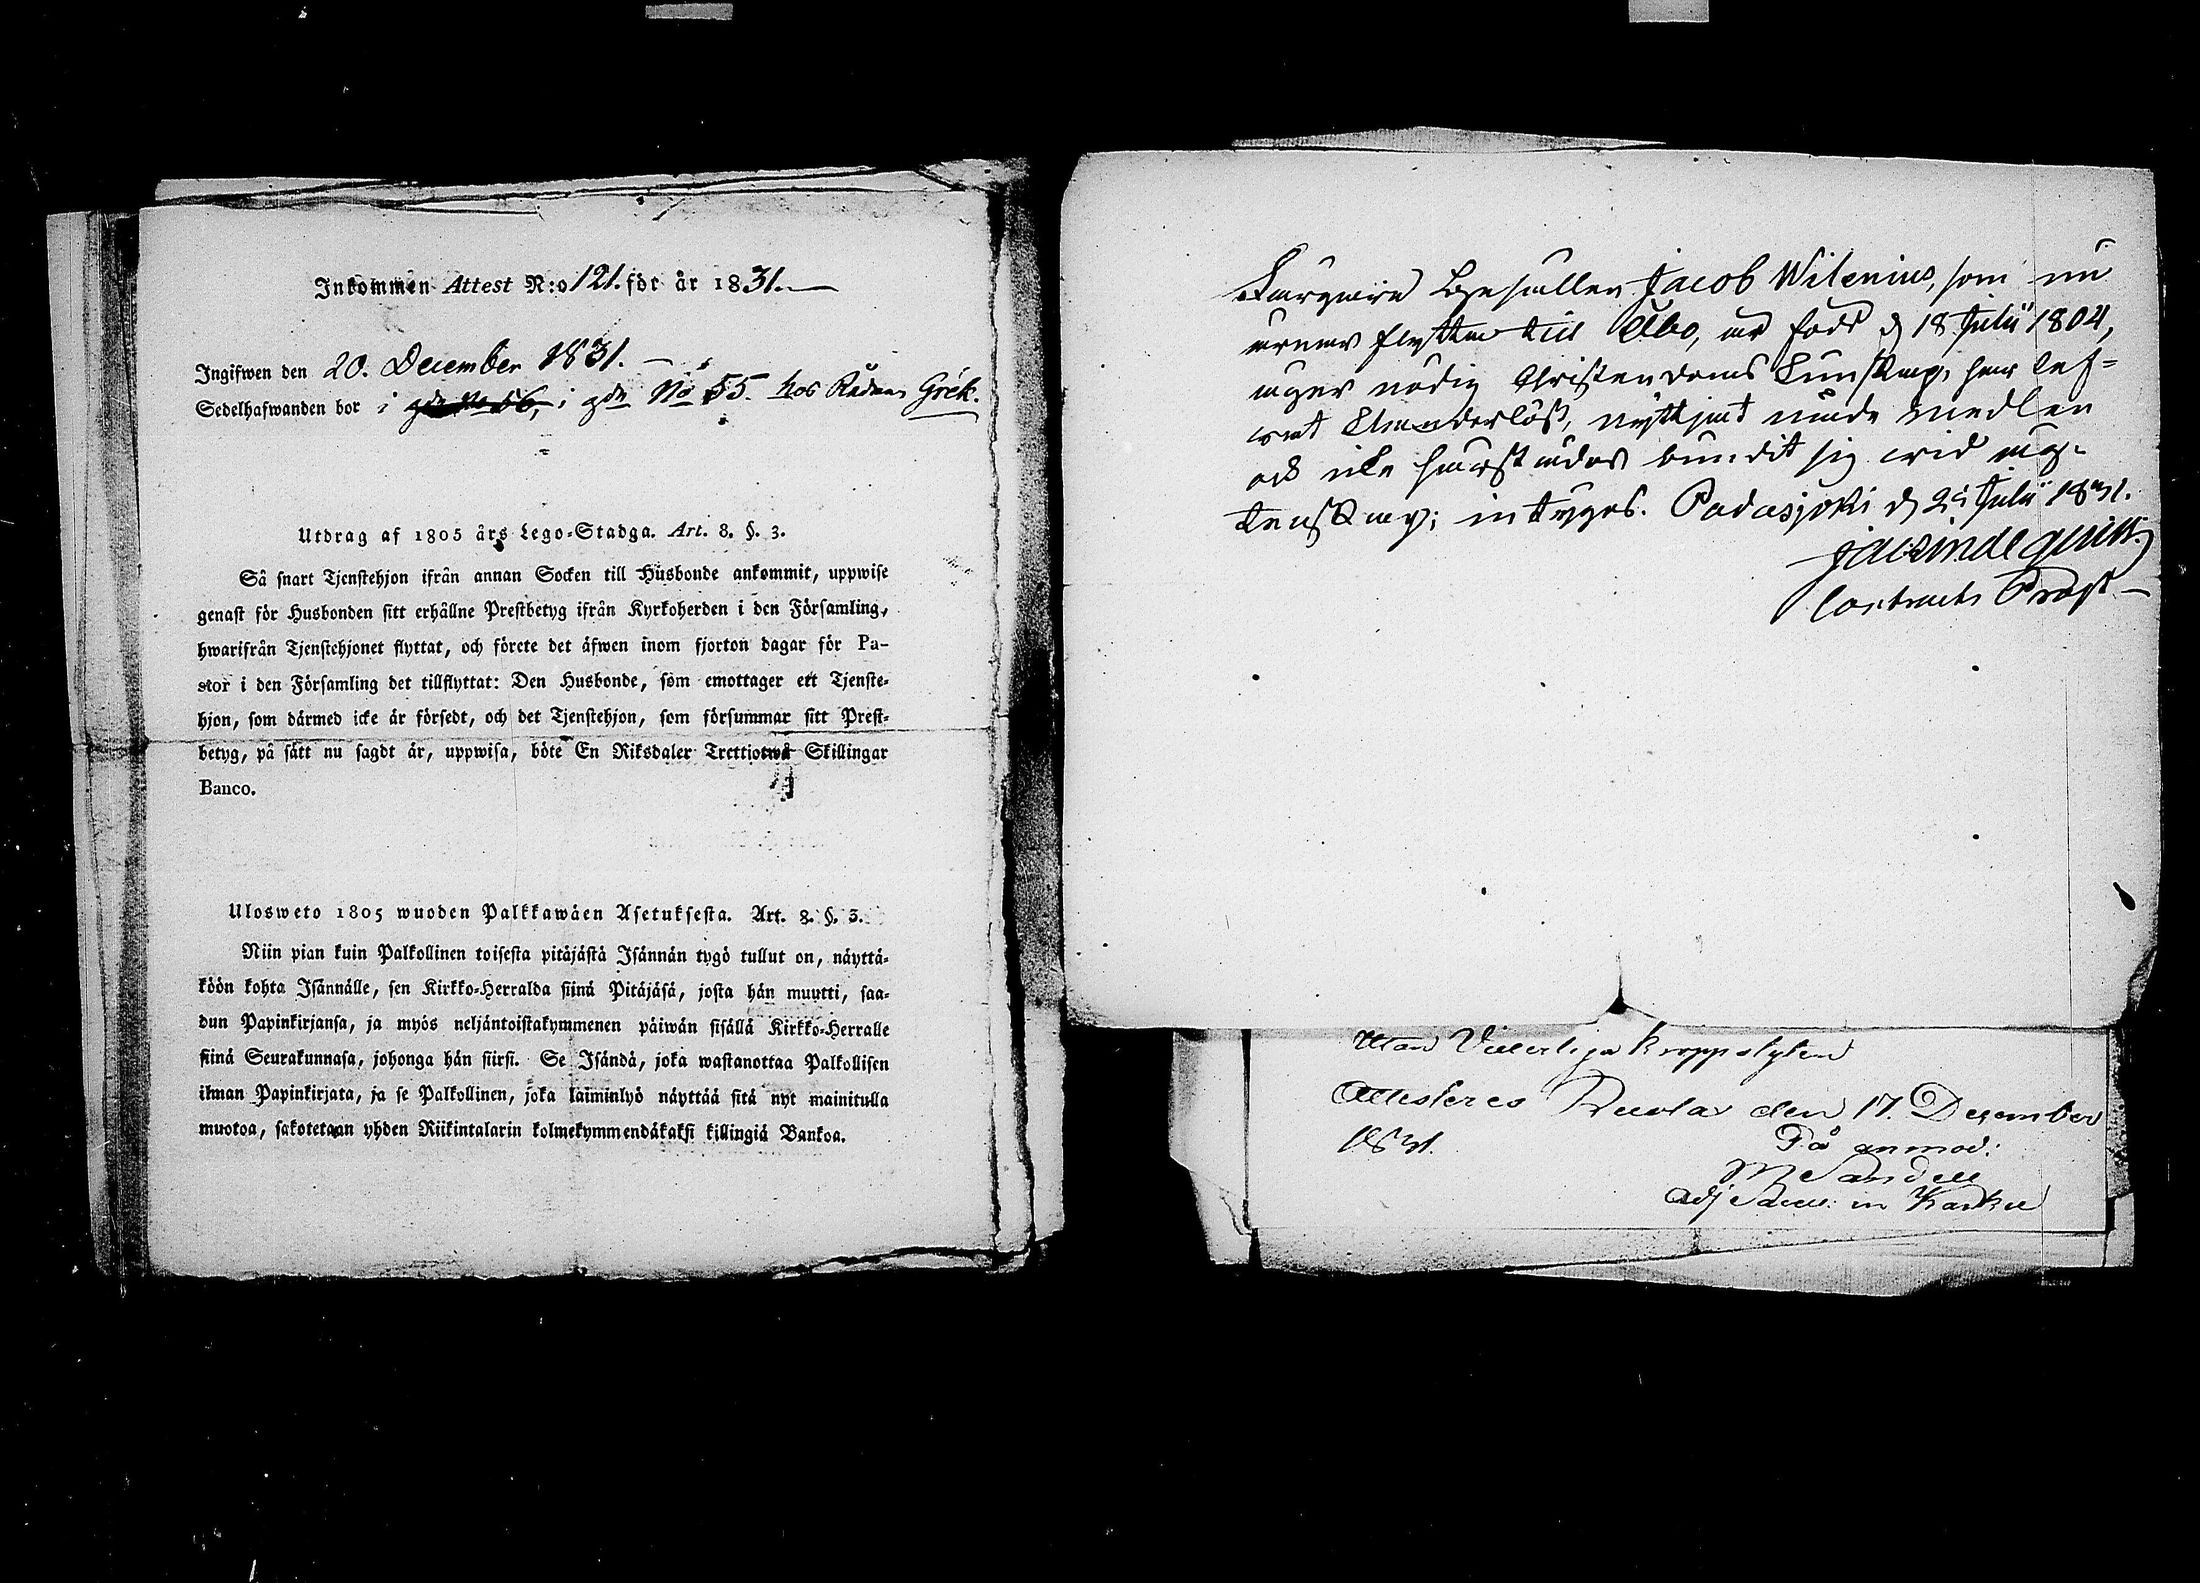 Inkommen Attest N:o 121. för år 1831.
Ingifwen den 20. December 1831.
Sedelhafwanden bor i gdn No 56, i gdn No 55. hos Rådman Grék.
Utdrag af 1805 års Lego-Stadga. Art. 8. §. 3.
Så snart Tjenstehjon ifrån annan Socken till Husbonde ankommit, uppwise
genast för Husbonden sitt erhållne Prestbetyg ifrån Kyrkoherden i den Församling,
hwarifrån Tjenstehjonet flyttat, och förete det äfwen inom fjorton dagar för Pa-
stor i den Församling det tillflyttat: Den Husbonde, som emottager ett Tjenste-
hjon, som därmed icke är försedt, och det Tjenstehjon, som försummar sitt Prest-
betyg, på sätt nu sagdt är, uppwisa, böte En Riksdaler Trettiotwå Skillingar
Banco.
Ulosweto 1805 wuoden Palkkawäen Asetuksesta. Art. 8. §. 3.
Niin pian kuin Palkollinen toisesta pitäjästä Isännän tygö tullut on, näyttä-
köön kohta Isännälle, sen Kirkko-Herralda siinä Pitäjäsä, josta hän muutti, saa-
dun Papinkirjansa, ja myös neljäntoistakymmenen päiwän sisällä Kirkko-Herralle
siinä Seurakunnasa, johonga hän siirsi. Se Isändä, joka wastanottaa Palkollisen
ilman Papinkirjata, ja se Palkollinen, joka laiminlyö näyttää sitä nyt mainitulla
muotoa, sakotetaan yhden Riikintalarin kolmekymmendäkaksi killingiä Bankoa.
Garfware Gesällen Jacob Wilenius, som nu
ärnar flytta till Åbo, är född d 18 Julii 1804,
äger nödig Christendoms Kunskap, har lef-
wat Klanderlöst, nyttjat nåde medlen
och icke härstädes bundit sig wid äg-
tenskap; intygas. Padasjoki d Julii 1831.
Contracts Prost
Utan kroppslyten
Attesteres den 17. December
1831. På anmod:
M Sandell
Adj: in Karku